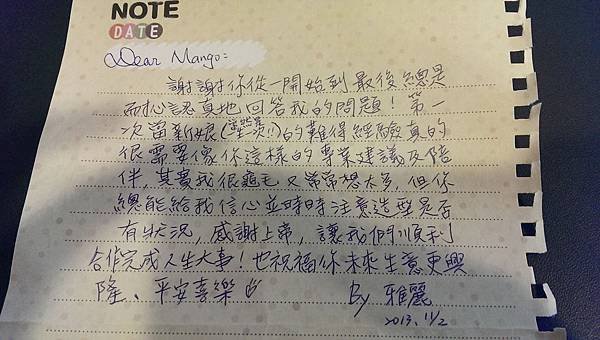 NOTE
DATE
Dear Mango:
謝謝你從一開始到最後總是
耐心認真地回答我的問題！第一
次當新娘(當然!!)的難得經驗真的
很需要像你這樣的專業建議及陪
伴，其實我很龜毛又常常想太多，但你
總能給我信心並時時注意造型是否
有狀況，感謝上帝，讓我們順利
合作完成人生大事！也祝福你未來生意更興
隆、平安喜樂
By 雅麗
2013. 11/2